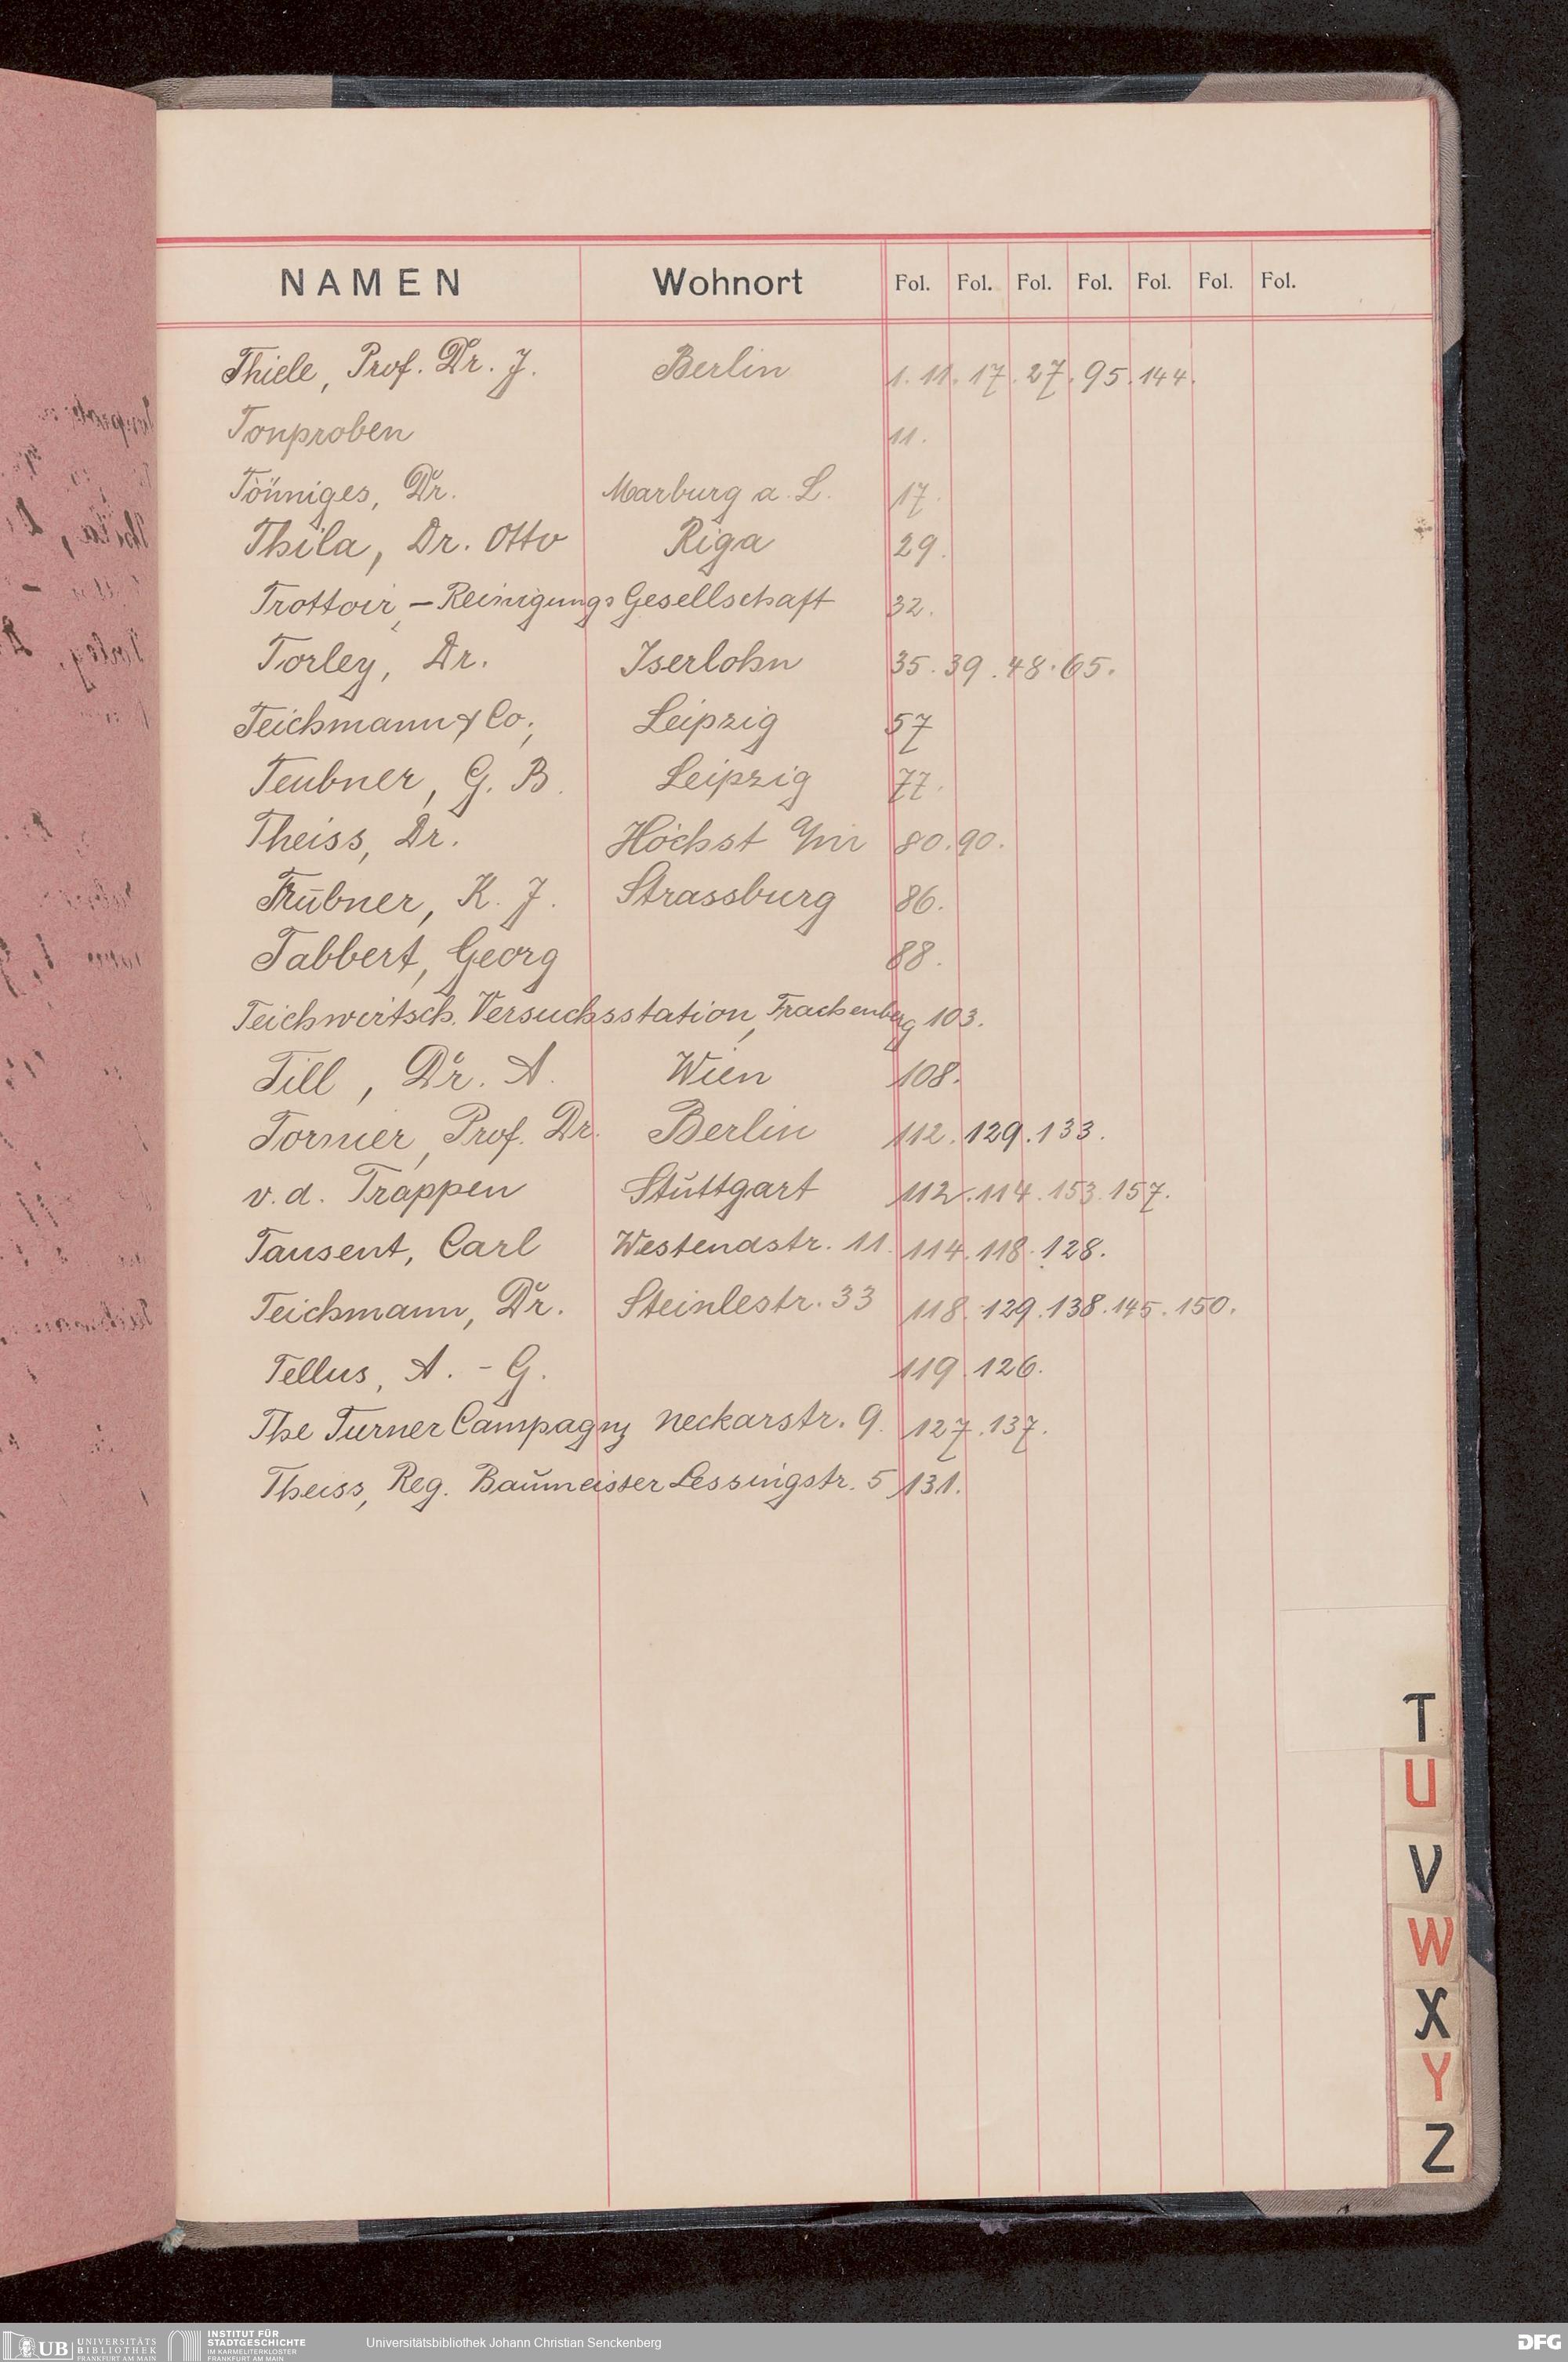 NAMEN Wohnort Fol. Fol. Fol. Fol. Fol. Fol. Fol.
Thiele, Prof. Dr. J. Berlin 1. 11. 17. 27. 95. 144.
Tonproben 11.
Tönniges, Dr. Marburg a. L. 17.
Thila, Dr. Otto Riga 29.
Trottoir,-Reinigungs Gesellschaft 32.
Torley, Dr. Iserlohn 35. 39. 48. 65.
Teichmann & Co; Leipzig 57
Teubner, G. B. Leipzig 77.
Theiss, Dr. Höchst 80. 90.
Trübner, K. J. Strassburg 86.
Tabbert, Georg 88.
Teichwirtsch. Versuchsstation, Trachenberg 103.
Till, Dr. A. Wien 108.
Tornier, Prof. Dr. Berlin 112. 129. 133.
v. d. Trappen Stuttgart 112. 114. 153. 157.
Tausent, Carl Westendstr. 11. 114. 118. 128.
Teichmann, Dr. Steinlestr. 33 118. 129. 138. 145. 150.
Tellus, A.-G. 119. 126.
The Turner Campagny Neckarstr. 9. 127. 137.
Theiss, Reg. Baumeister Lessingstr. 5 131.
T
U
V
W
X
Y
Z
UB UNIVERSITÄTS BIBLIOTHEK FRANKFURT AM MAIN
INSTITUT FÜR STADTGESCHICHTE IM KARMELITERKLOSTER FRANKFURT AM MAIN
Universitätsbibliothek Johann Christian Senckenberg
DFG